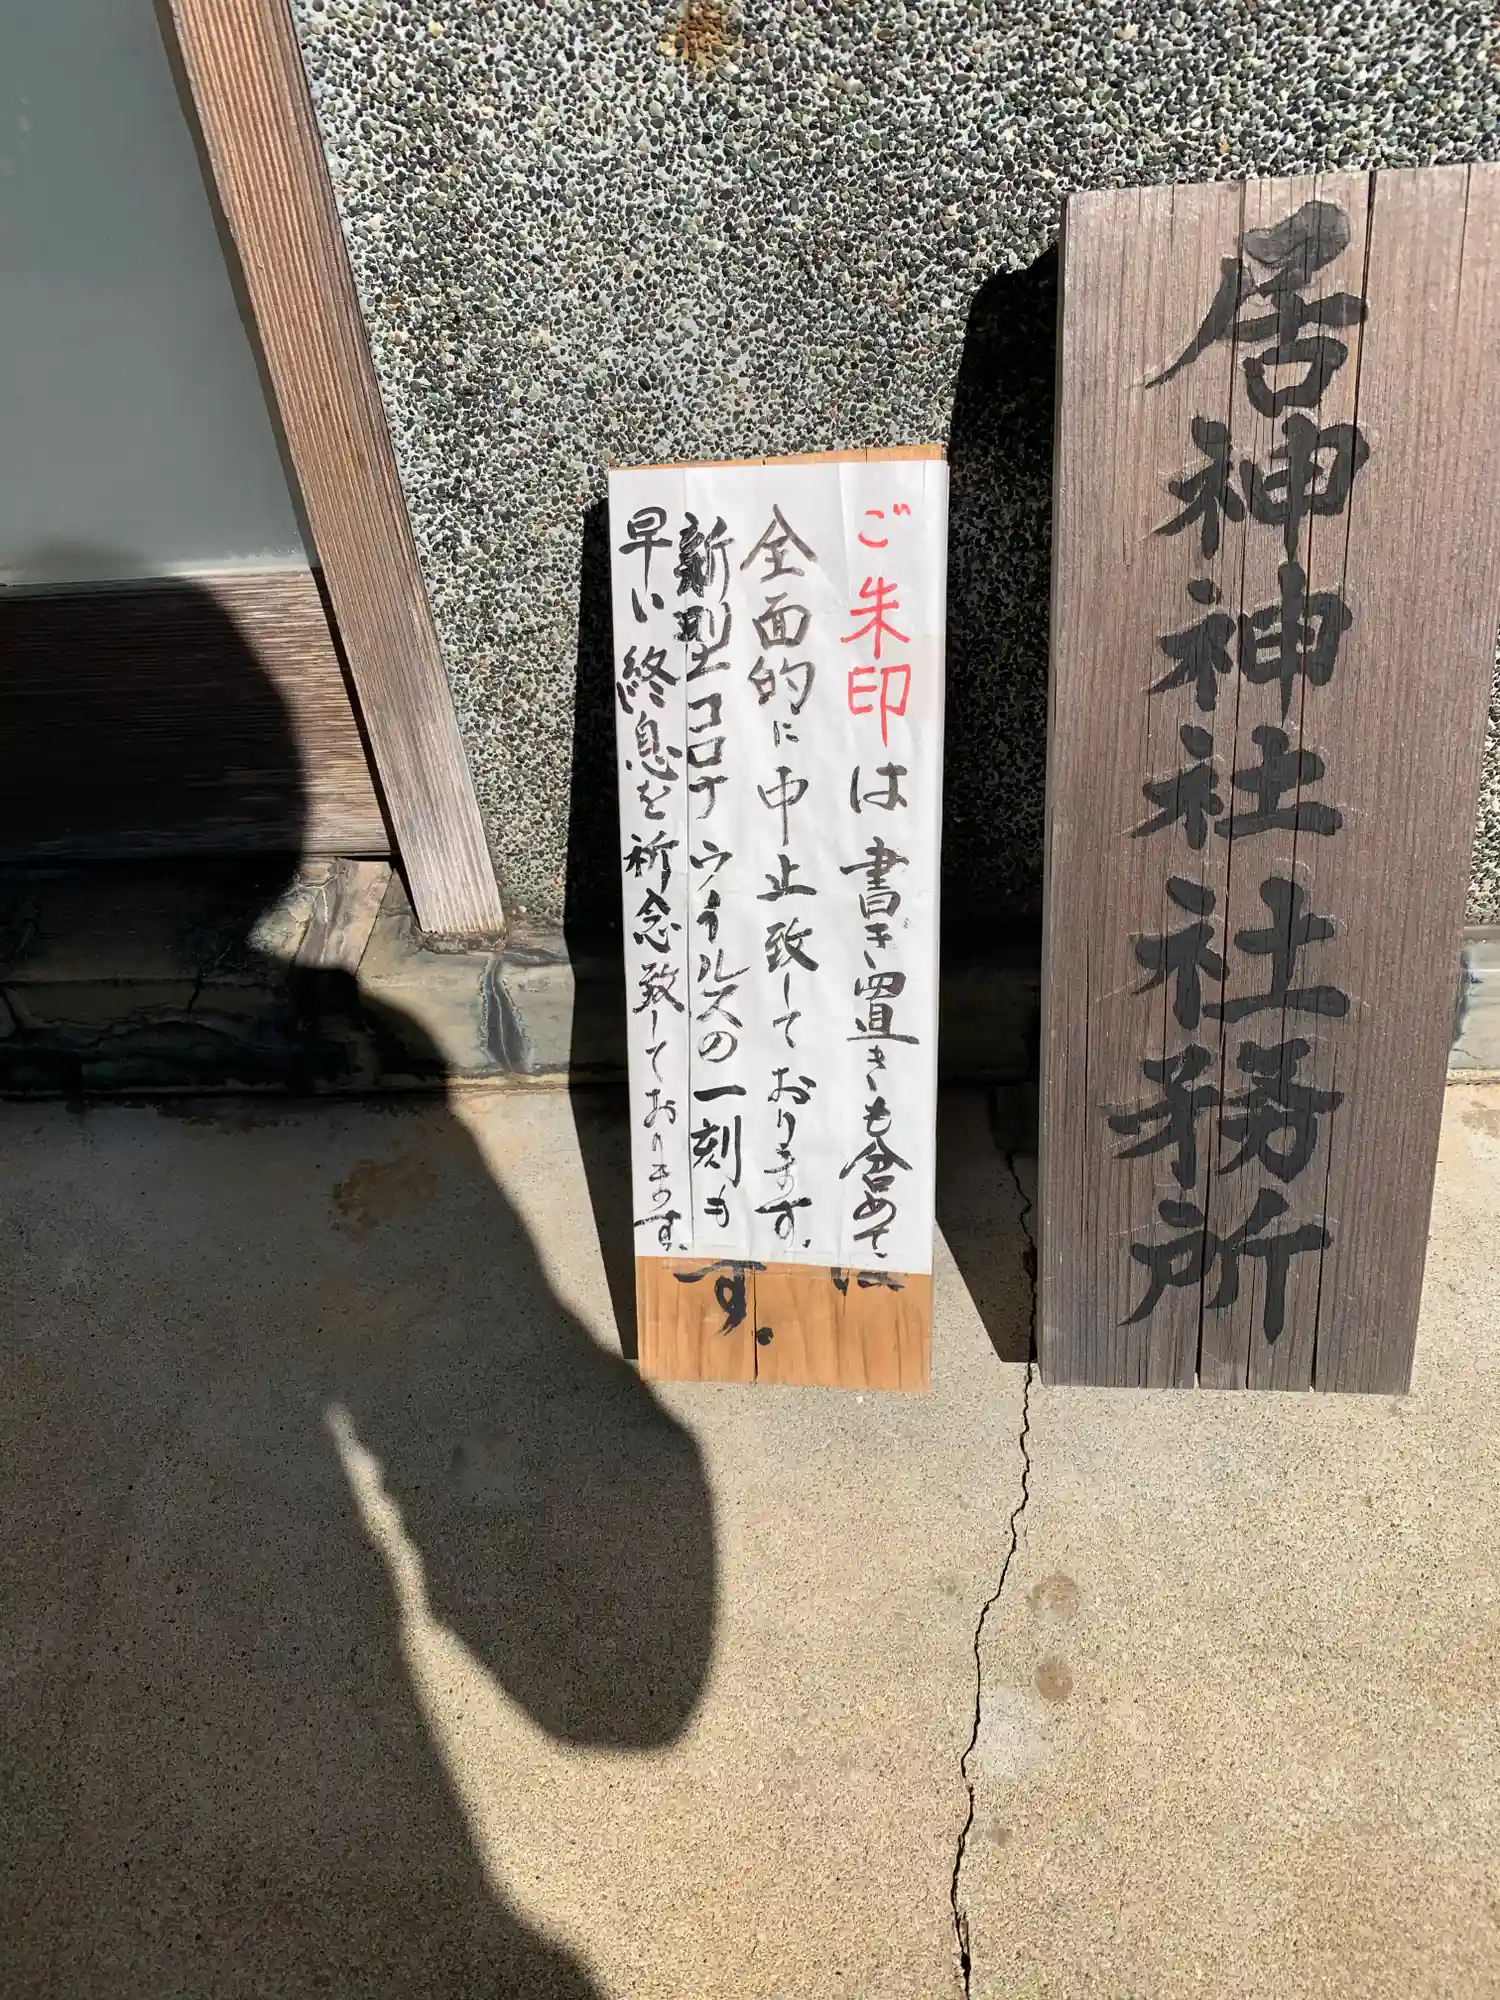 居神神社社務所
ご朱印は書き置きも含めて
全面的に中止致しております。
新型コロナウイルスの一刻も
早い終息を祈念致しております。
す。